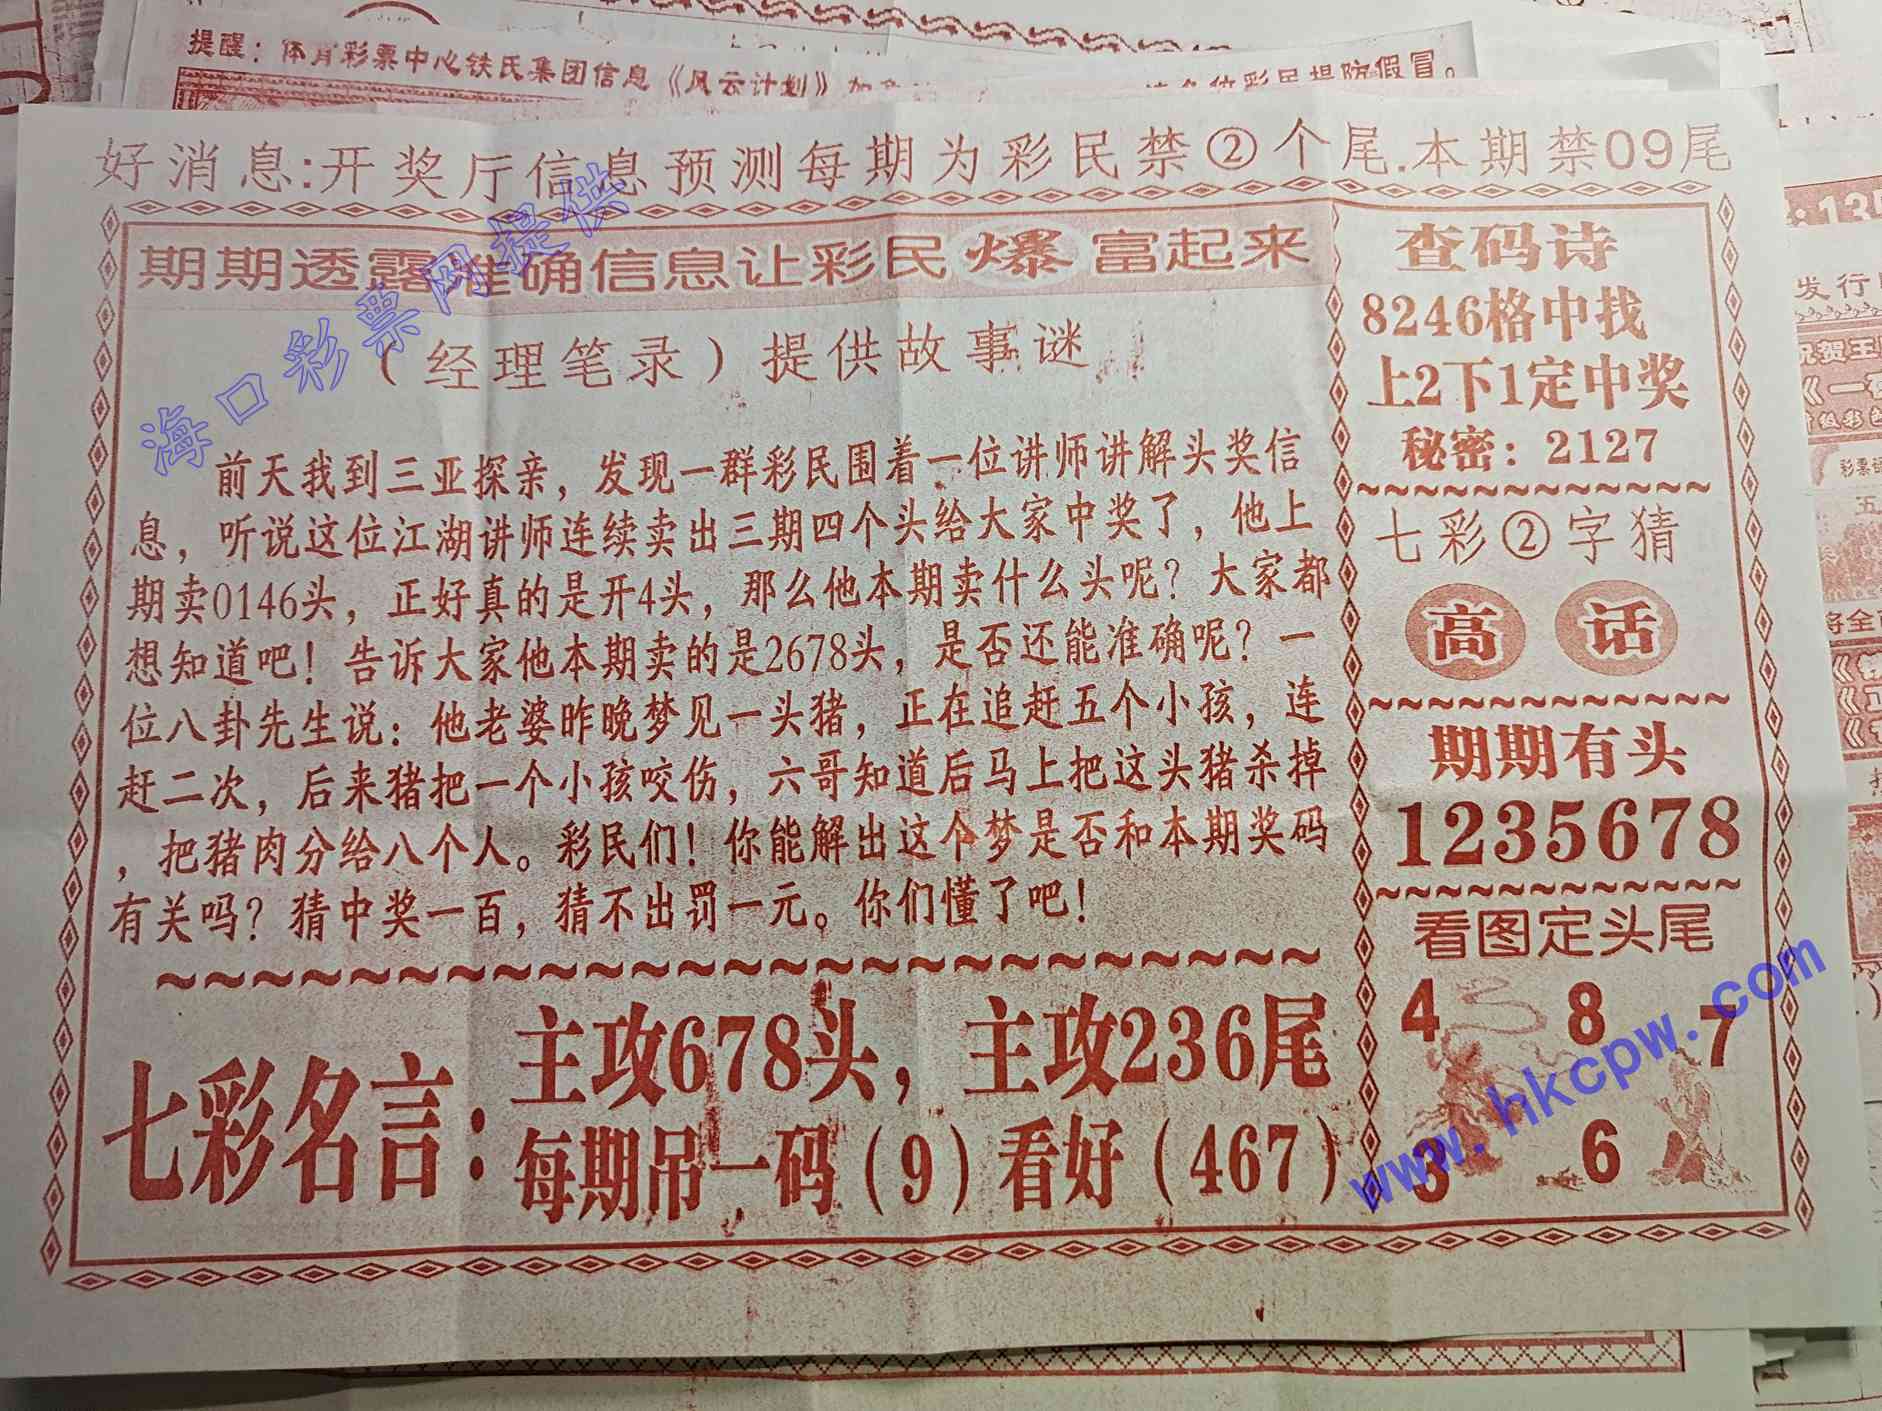 提醒：体育彩票中心铁氏集团信息《风云计划》
彩民提防假冒。
好消息:开奖厅信息预测每期为彩民禁②个尾.本期禁09尾
期期透露准确信息让彩民爆富起来
（经理笔录）提供故事谜
前天我到三亚探亲，发现一群彩民围着一位讲师讲解头奖信
息，听说这位江湖讲师连续卖出三期四个头给大家中奖了，他上
期卖0146头，正好真的是开4头，那么他本期卖什么头呢？大家都
想知道吧！告诉大家他本期卖的是2678头，是否还能准确呢？一
位八卦先生说：他老婆昨晚梦见一头猪，正在追赶五个小孩，连
赶二次，后来猪把一个小孩咬伤，六哥知道后马上把这头猪杀掉
，把猪肉分给八个人。彩民们！你能解出这个梦是否和本期奖码
有关吗？猜中奖一百，猜不出罚一元。你们懂了吧！
七彩名言：
主攻678头，主攻236尾
每期吊一码（9）看好（467）
查码诗
8246格中找
上2下1定中奖
秘密：2127
七彩②字猜
高 话
期期有头
1235678
看图定头尾
4 8 7
3 6
海口彩票网提供
www.hkcpw.com
:135
发行
祝贺王
《一
彩票
五
将全